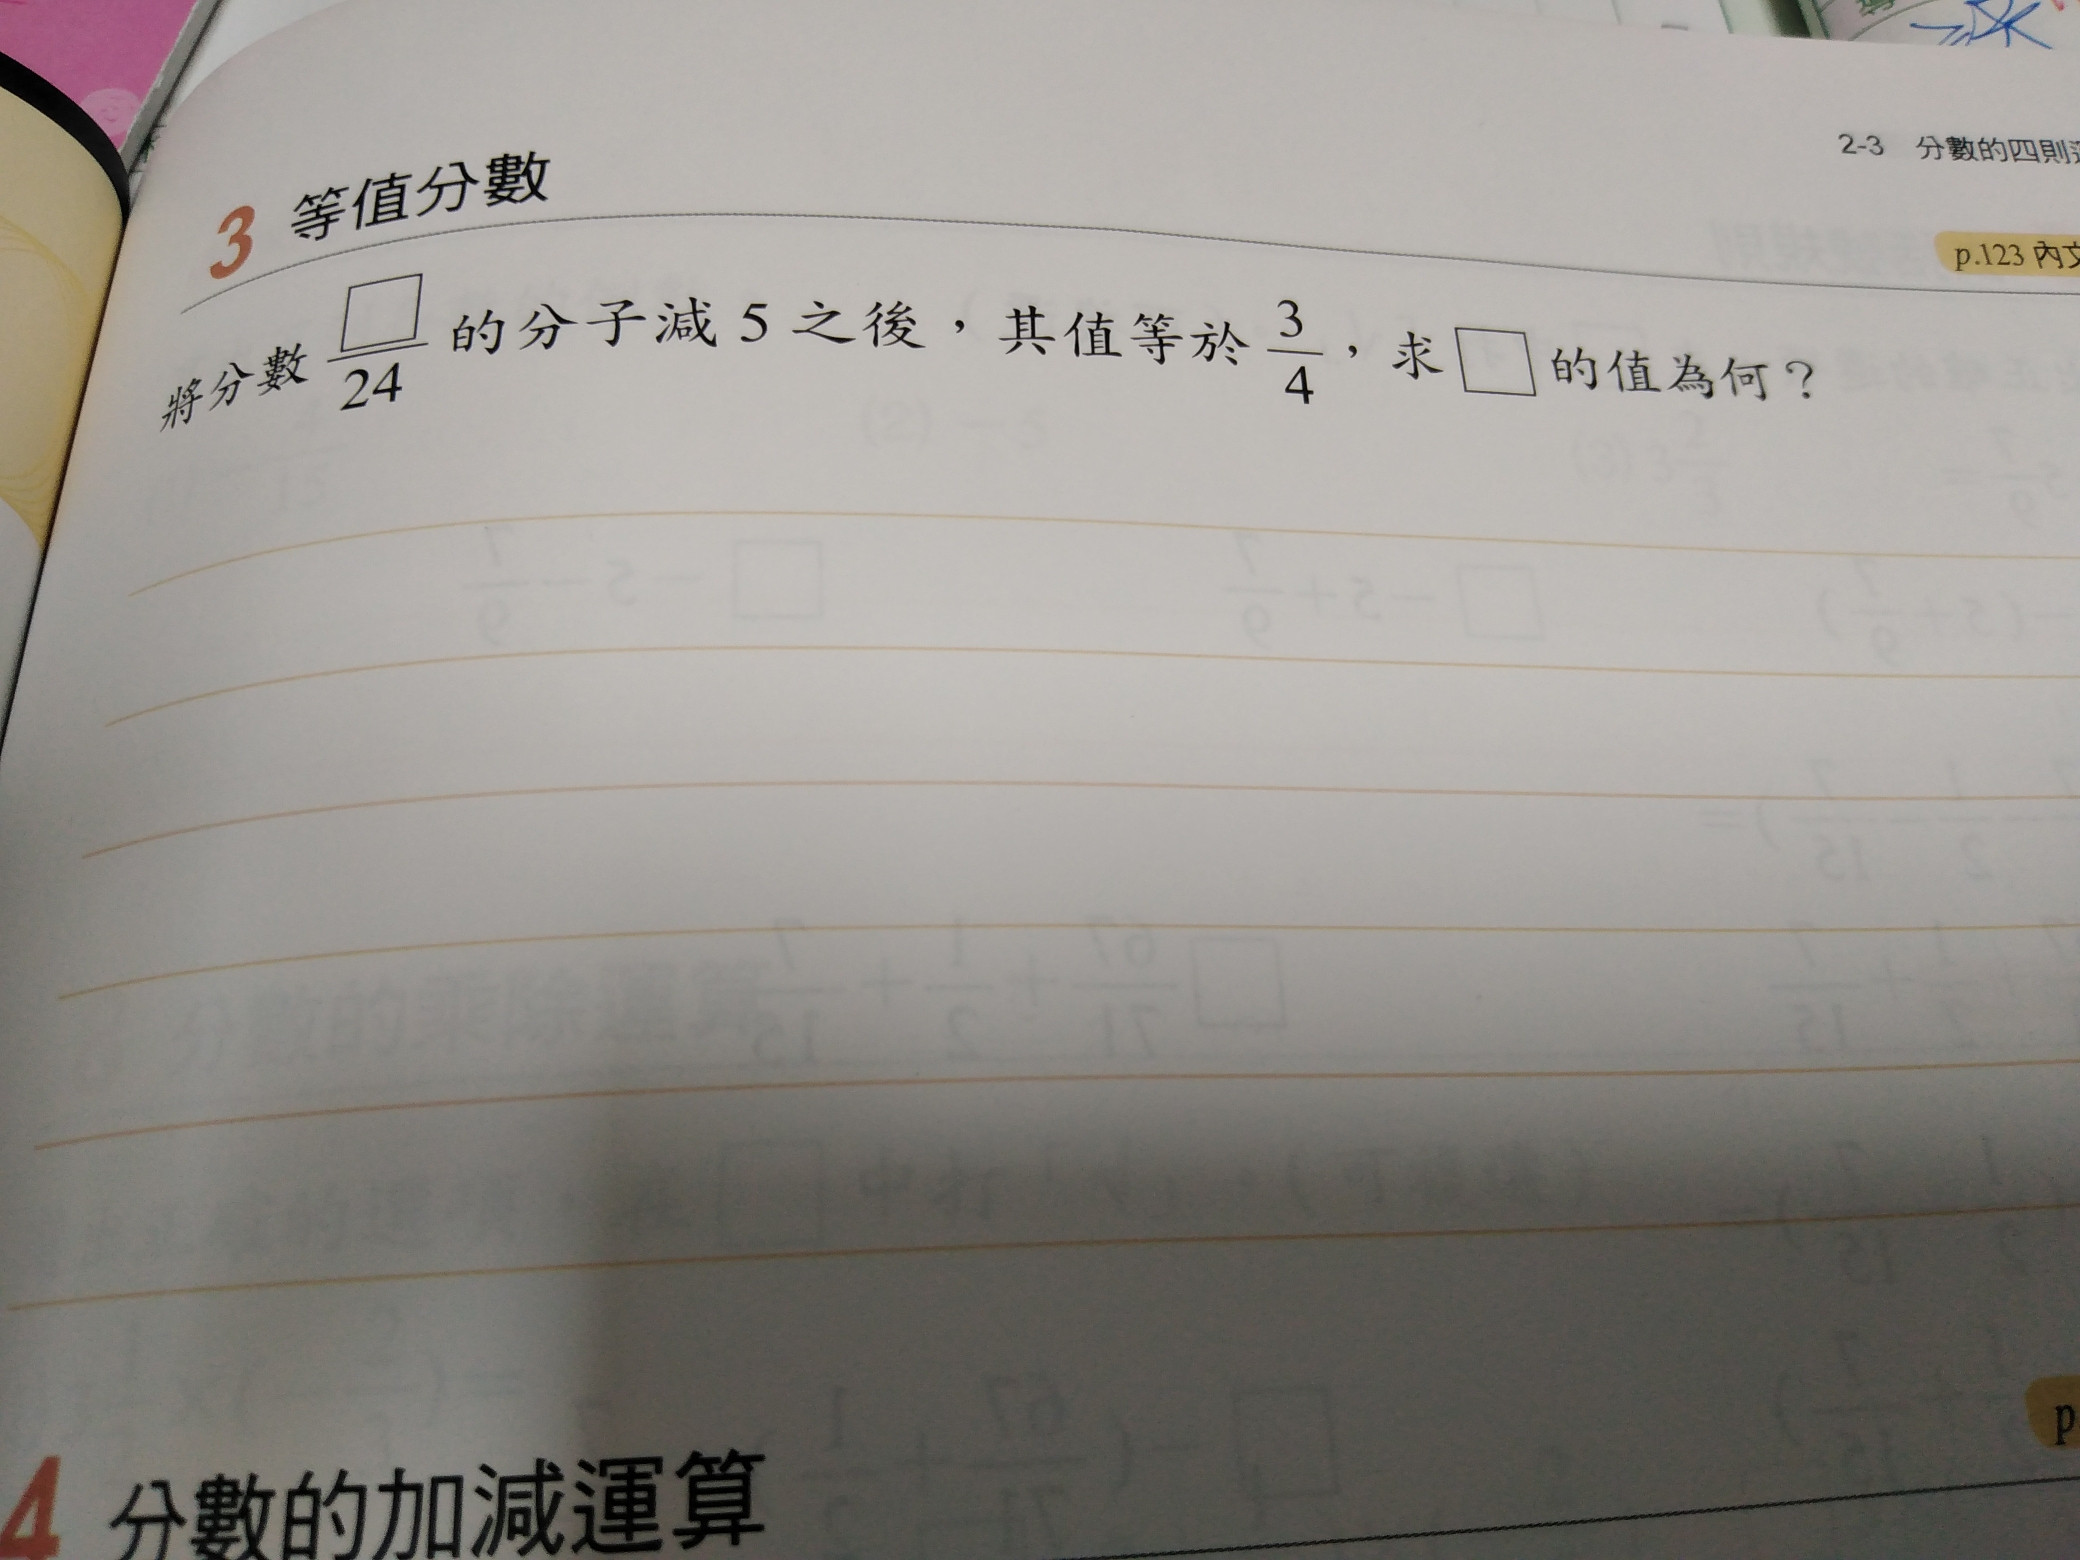 2-3 分數的四則
p.123 內文
3 等值分數
將分數 □/24 的分子減 5 之後，其值等於 3/4，求 □ 的值為何？
p
4 分數的加減運算